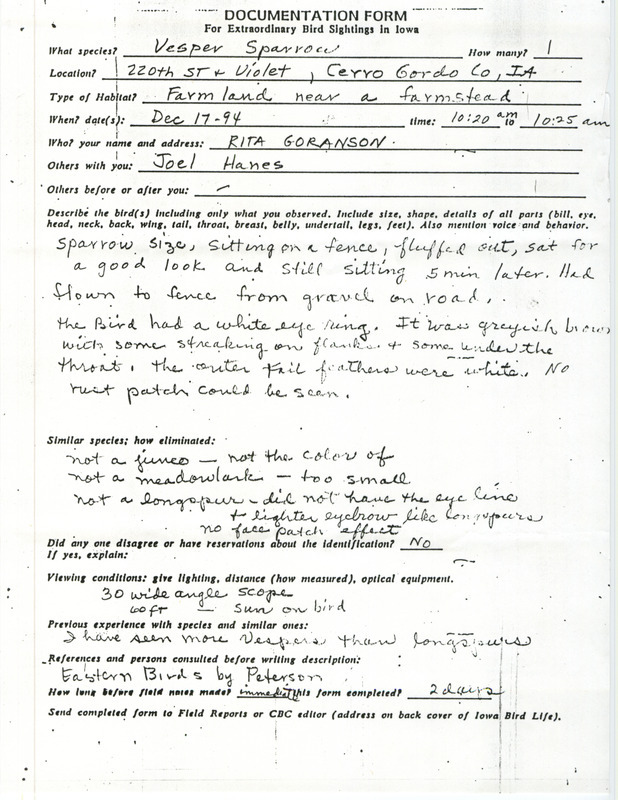 DOCUMENTATION FORM
For Extraordinary Bird Sightings in Iowa
What species? Vesper Sparrow How many? 1
Location? 220th ST & Violet, Cerro Gordo Co, IA
Type of Habitat? Farmland near a farmstead
When? date(s): Dec 17-94 time: 10:20 am to 10:25 am
Who? your name and address: RITA GORANSON
Others with you: Joel Hanes
Others before or after you: –
Describe the bird(s) including only what you observed. Include size, shape, details of all parts (bill, eye,
head, neck, back, wing, tail, throat, breast, belly, undertail, legs, feet). Also mention voice and behavior.
Sparrow size, sitting on a fence, fluffed out, sat for
a good look and still sitting 5 min later. Had
flown to fence from gravel on road.
The Bird had a white eye ring. It was greyish brown
with some streaking on flanks & some under the
throat. The outer tail feathers were white. No
rust patch could be seen.
Similar species; how eliminated:
not a junco — not the color of
not a meadowlark — too small
not a longspur - did not have the eye line
& lighter eyebrow like longspurs
no face patch effect
Did any one disagree or have reservations about the identification? No
If yes, explain:
Viewing conditions: give lighting, distance (how measured), optical equipment.
30 wide angle scope
60 ft — sun on bird
Previous experience with species and similar ones:
I have seen more Vespers than longspurs
References and persons consulted before writing description:
Eastern Birds by Peterson
How long before field notes made? immediat this form completed? 2 days
Send completed form to Field Reports or CBC editor (address on back cover of Iowa Bird Life).